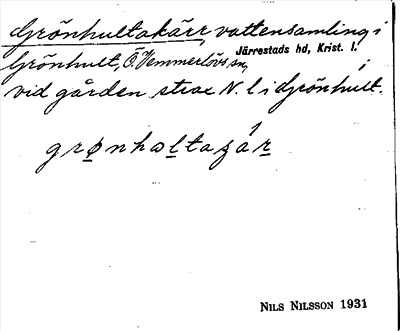 Grönhultakärr, vattensamling i
Grönhult, Ö. Vemmerlövs sn, Järrestads hd, Krist. l.
vid gården strax N. l i Grönhult.
grønhwltazár
NILS NILSSON 1931